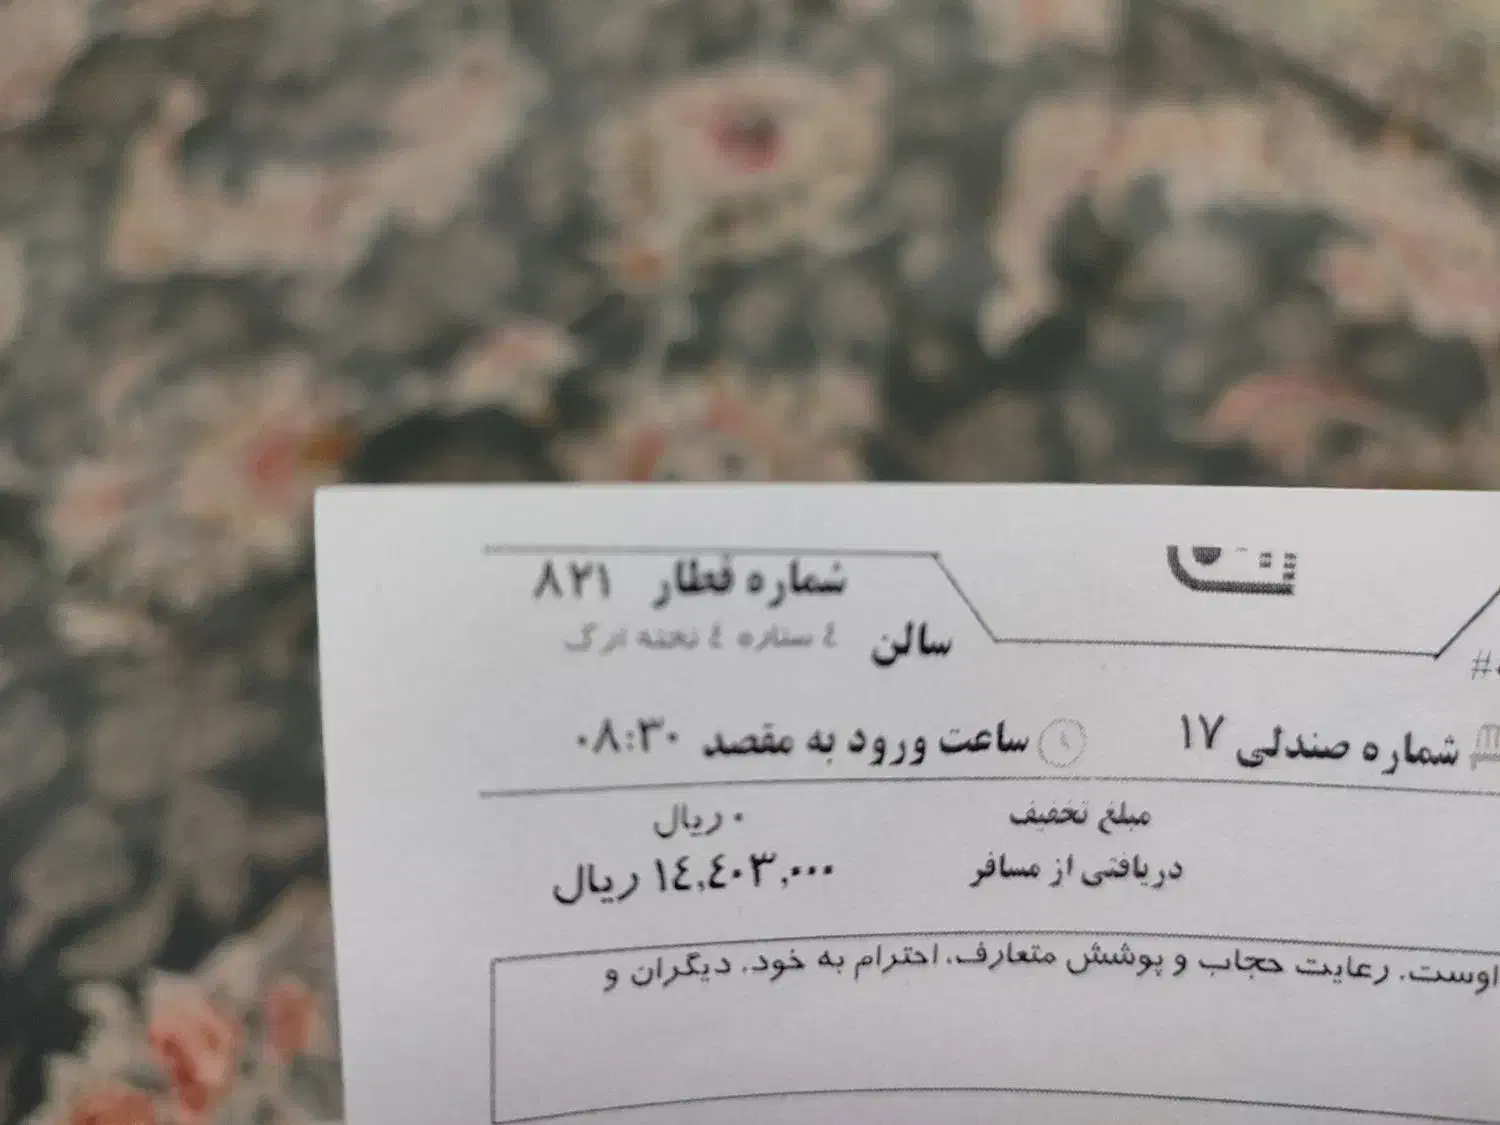 شماره قطار ۸۲۱
سالن ٤ ستاره ٤ تخته ترک
#
شماره صندلی ۱۷
ساعت ورود به مقصد ۰۸:۳۰
مبلغ تخفیف ۰ ریال
دریافتی از مسافر ۱٤,٤۰۳,۰۰۰ ریال
اوست. رعایت حجاب و پوشش متعارف، احترام به خود، دیگران و